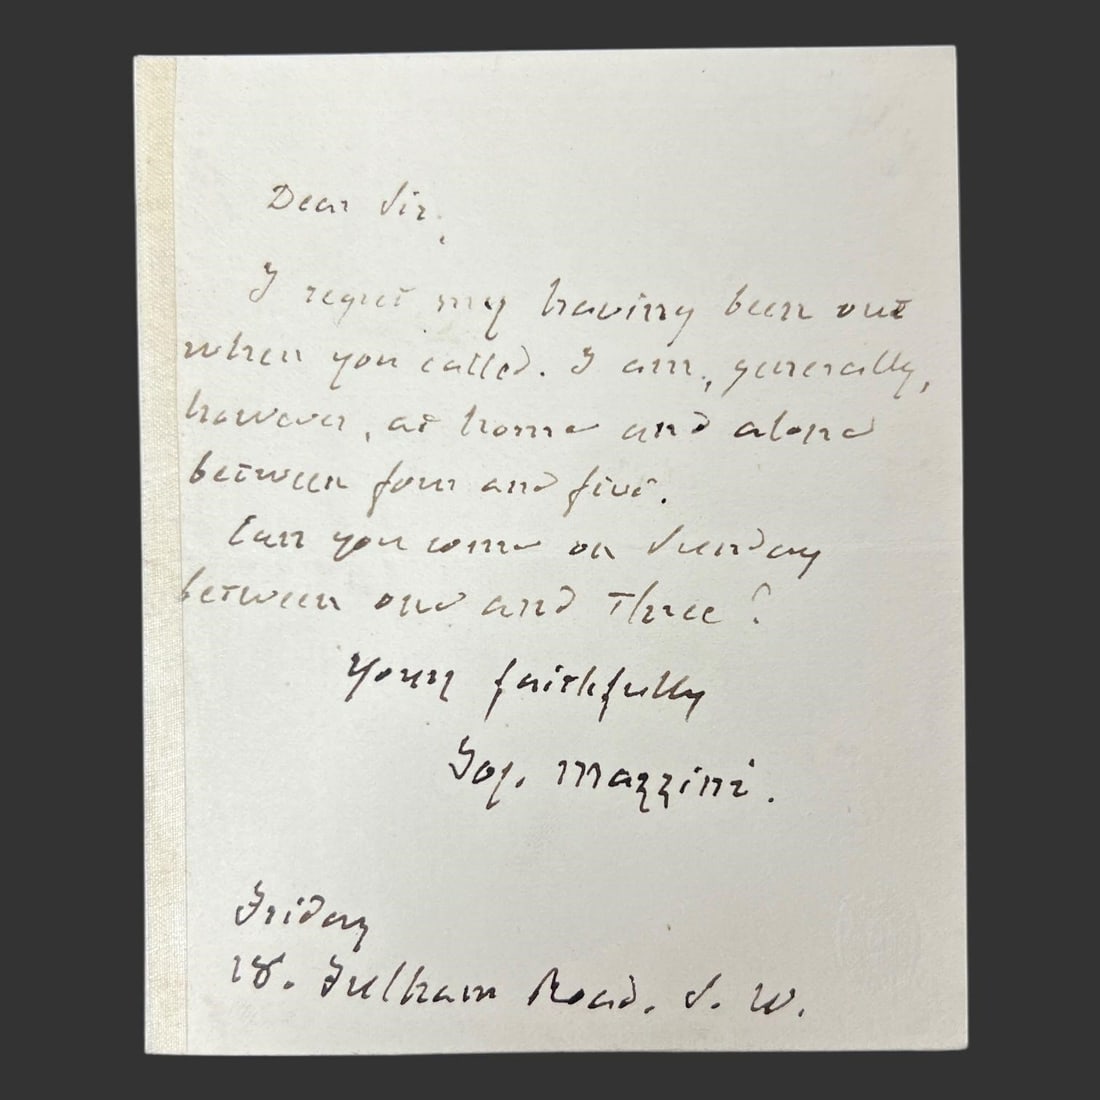 Dear Sir,
I regret my having been out
when you called. I am, generally,
however, at home and alone
between four and five.
Can you come on Sunday
between one and three?
Yours faithfully
Jos. Mazzini.
Friday
18. Fulham Road. S. W.